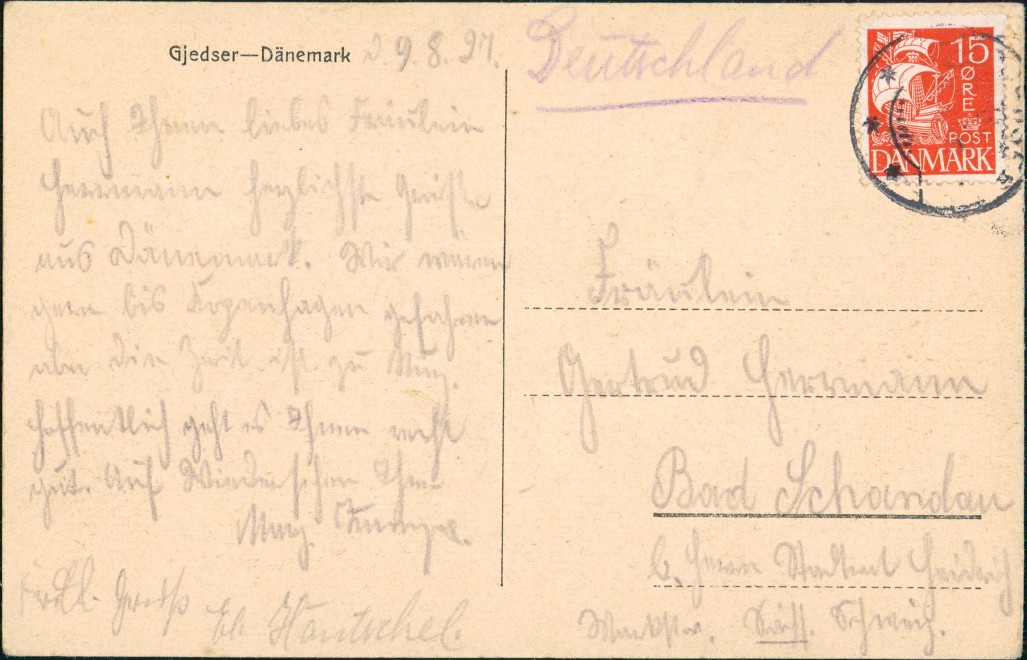 Gjedser—Dänemark
d. 9. 8. 27.
Deutschland
15
ØRE
POST
DANMARK
Auch Ihnen liebes Fräulein
Herrmann herzlichste Grüße
aus Dänemark. Wir wären
gern bis Kopenhagen gefahren
aber die Zeit ist zu
Hoffentlich geht es Ihnen recht
gut. Auf Wiedersehen Ihr
Herzl. Gruß
Hantschel.
Fräulein
Gertrud Herrmann
Bad Schandau
b. Herrn
Sächs. Schweiz.